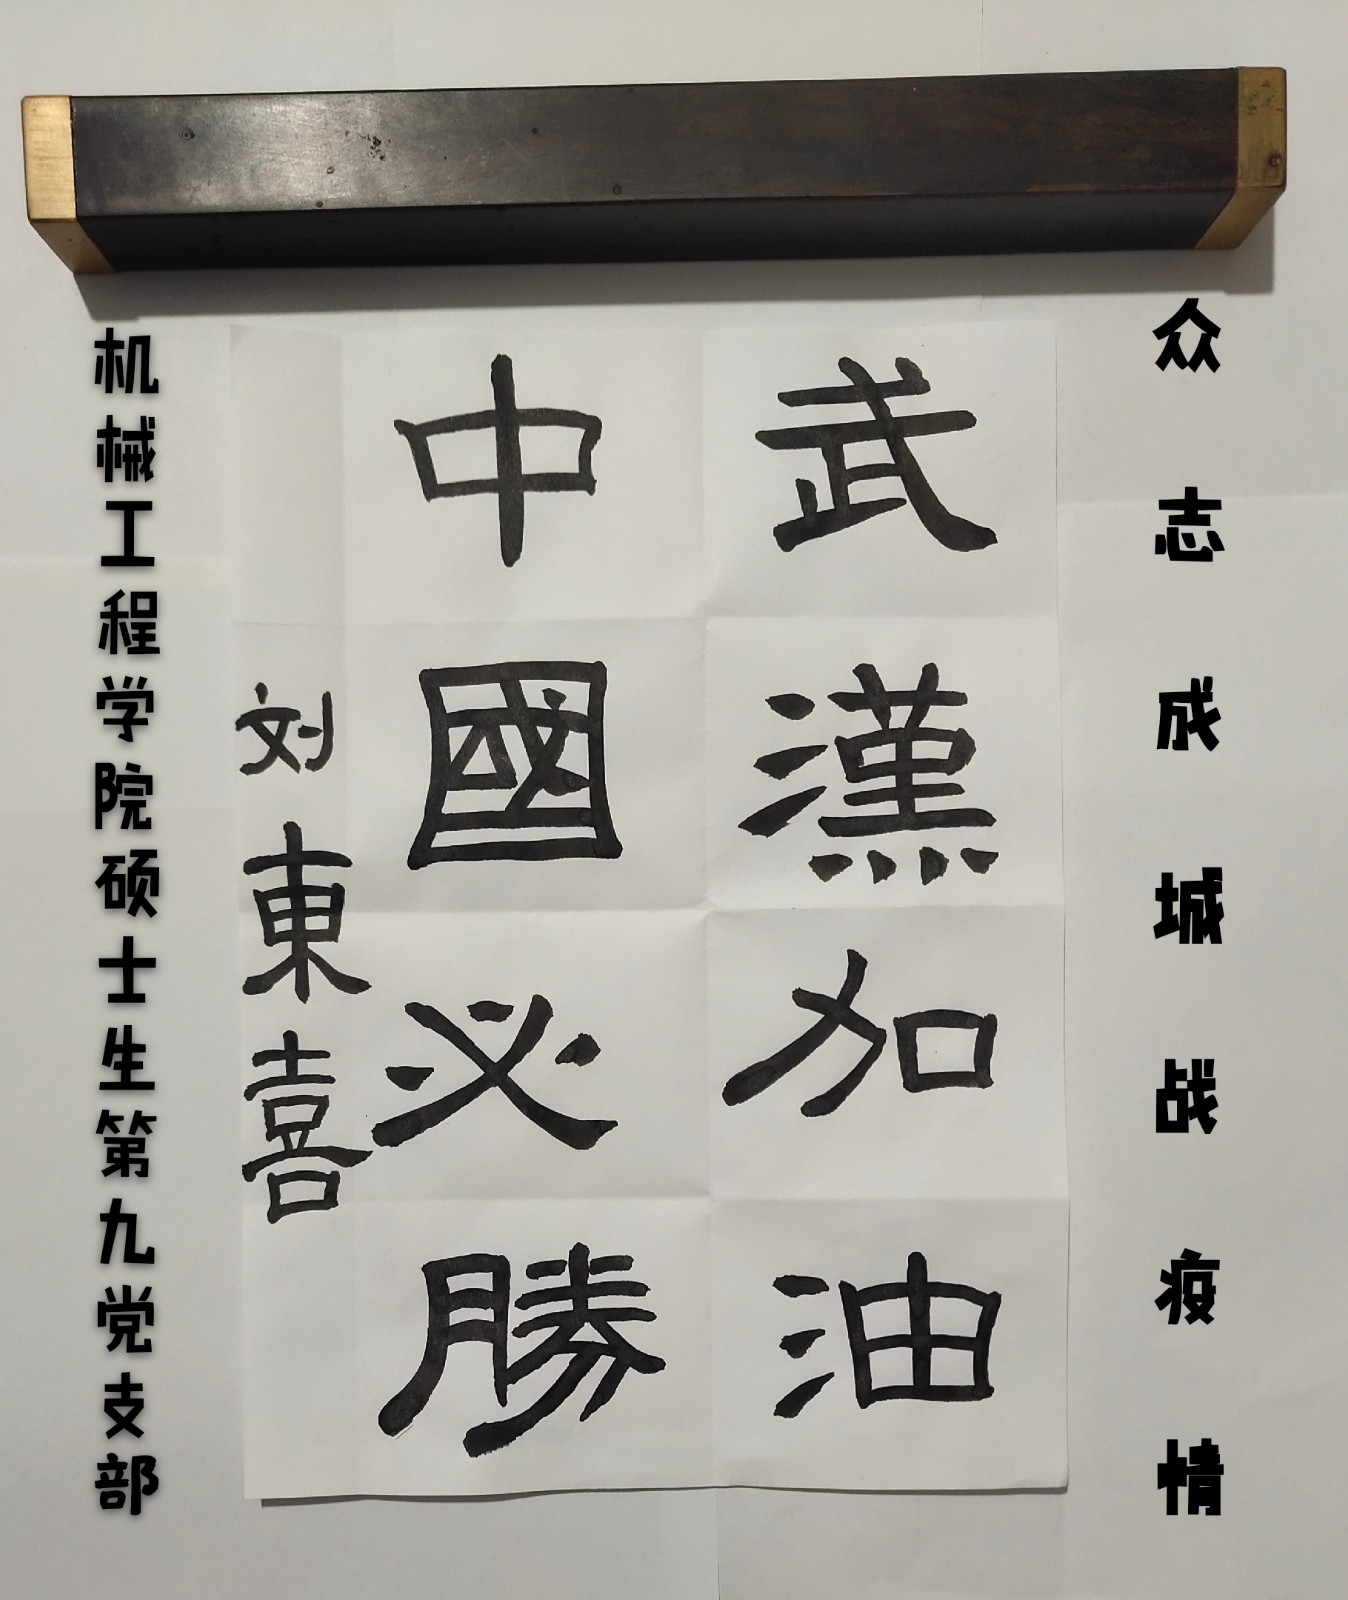 众志成城战疫情
武漢加油
中國必勝
刘東喜
机械工程学院硕士生第九党支部